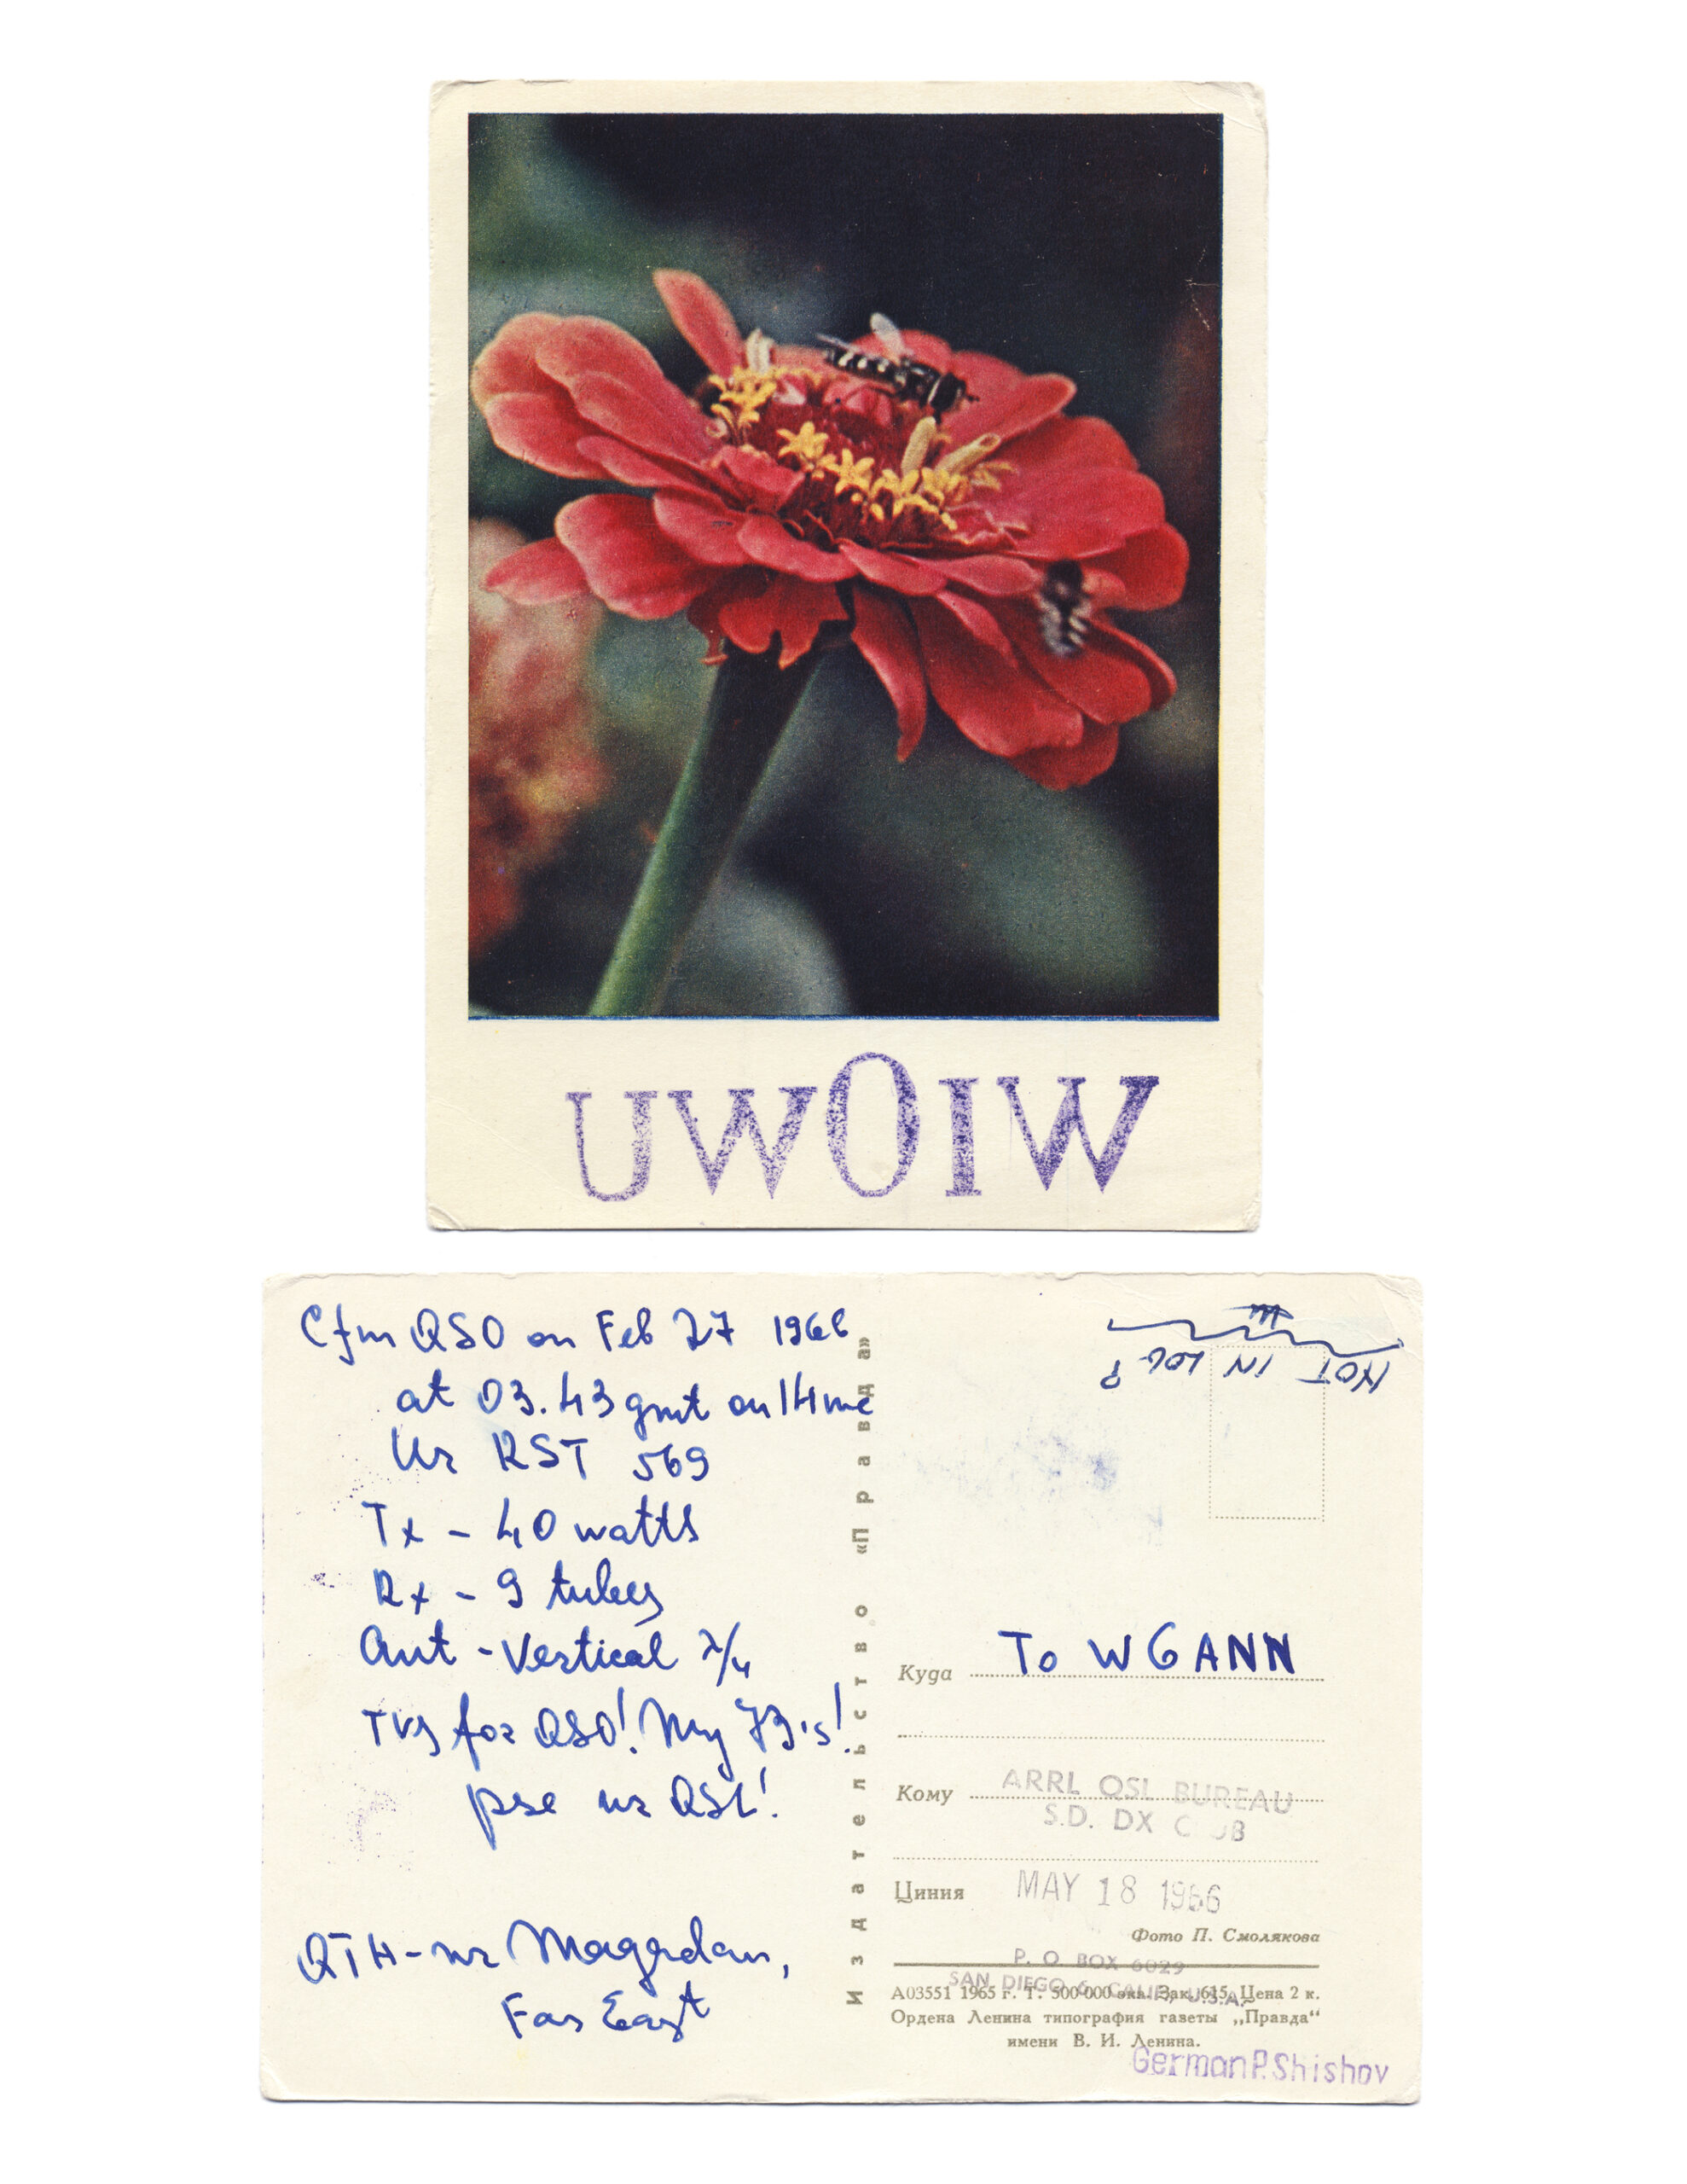 UW0IW
Cfm QSO on Feb 27 1966
at 03.43 gmt on 14mc
Ur RST 569
Tx - 40 watts
Rx - 9 tubes
Ant - Vertical λ/4
TKS for QSO! My 73's!
pse ur QSL!
QTH - nr Magadan,
Far East
Издательство «Правда»
NOT IN LOG?
To W6ANN
Куда
Кому
ARRL QSL BUREAU
S.D. DX CLUB
Циния
MAY 18 1966
Фото П. Смолякова
P. O. BOX 6029
SAN DIEGO 6, CALIF., U.S.A.
А03551 1965 г. Т. 500 000 экз. Зак. 615. Цена 2 к.
Ордена Ленина типография газеты „Правда“
имени В. И. Ленина.
German P. Shishov